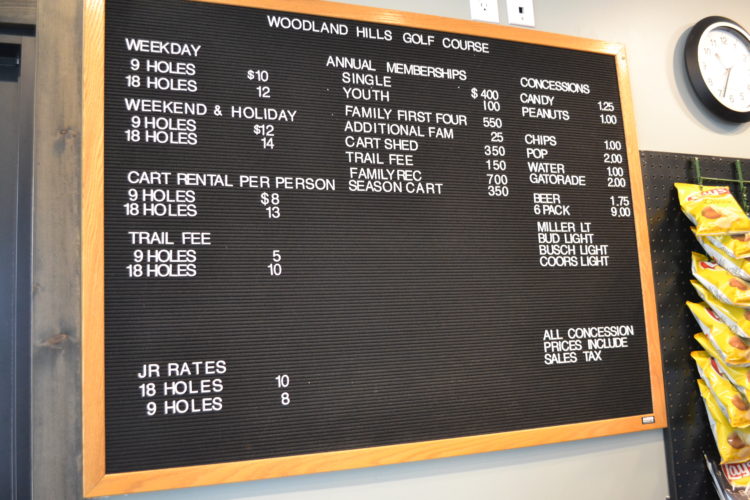 WOODLAND HILLS GOLF COURSE
WEEKDAY
9 HOLES $10
18 HOLES 12
WEEKEND & HOLIDAY
9 HOLES $12
18 HOLES 14
CART RENTAL PER PERSON
9 HOLES $8
18 HOLES 13
TRAIL FEE
9 HOLES 5
18 HOLES 10
JR RATES
18 HOLES 10
9 HOLES 8
ANNUAL MEMBERSHIPS
SINGLE $400
YOUTH 100
FAMILY FIRST FOUR 550
ADDITIONAL FAM 25
CART SHED 350
TRAIL FEE 150
FAMILY REC 700
SEASON CART 350
CONCESSIONS
CANDY 1.25
PEANUTS 1.00
CHIPS 1.00
POP 2.00
WATER 1.00
GATORADE 2.00
BEER 1.75
6 PACK 9.00
MILLER LT
BUD LIGHT
BUSCH LIGHT
COORS LIGHT
ALL CONCESSION
PRICES INCLUDE
SALES TAX